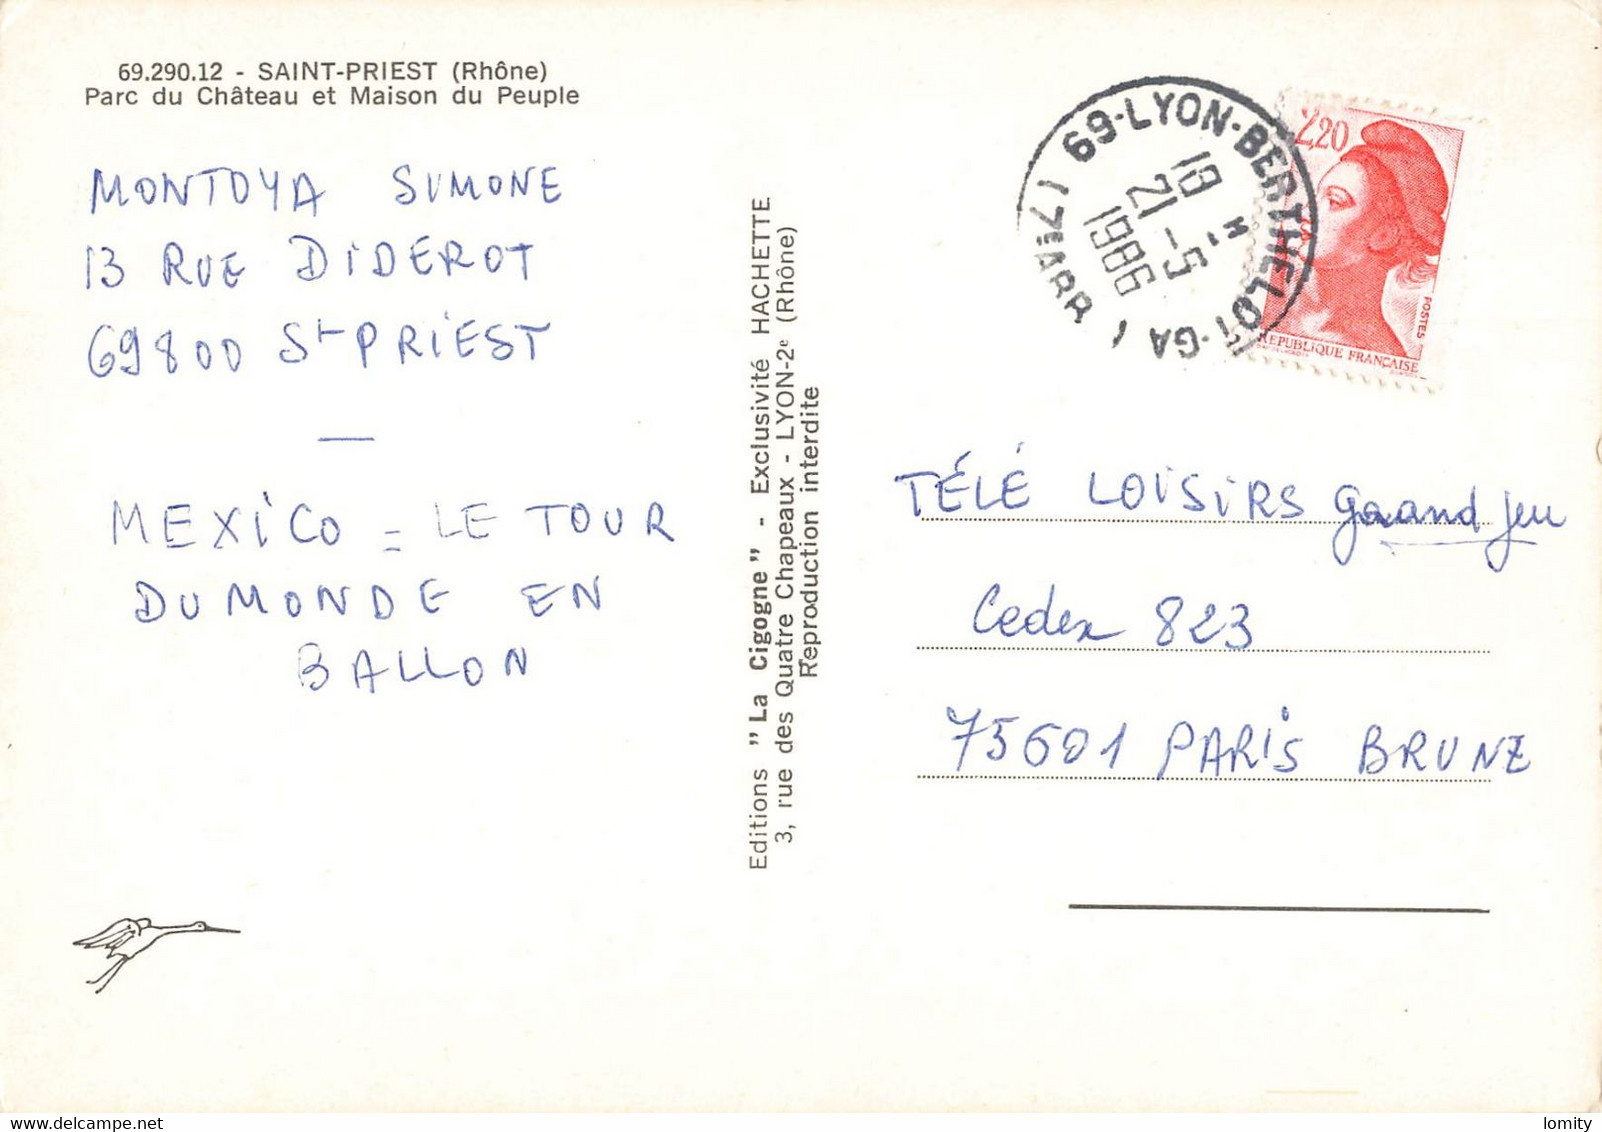 69.290.12 - SAINT-PRIEST (Rhône)
Parc du Château et Maison du Peuple
MONTOYA SIMONE
13 RUE DIDEROT
69800 St PRIEST
MEXICO = LE TOUR
DU MONDE EN
BALLON
Editions "La Cigogne" - Exclusivité HACHETTE
3, rue des Quatre Chapeaux - LYON-2e (Rhône)
Reproduction interdite
69-LYON-BERTHELOT-GA
(7è ARR)
19 H
21-5
1986
2,20
POSTES
REPUBLIQUE FRANÇAISE
TÉLÉ LOISIRS Gaaand jeu
Cedex 823
75601 PARIS BRUNE
lomity